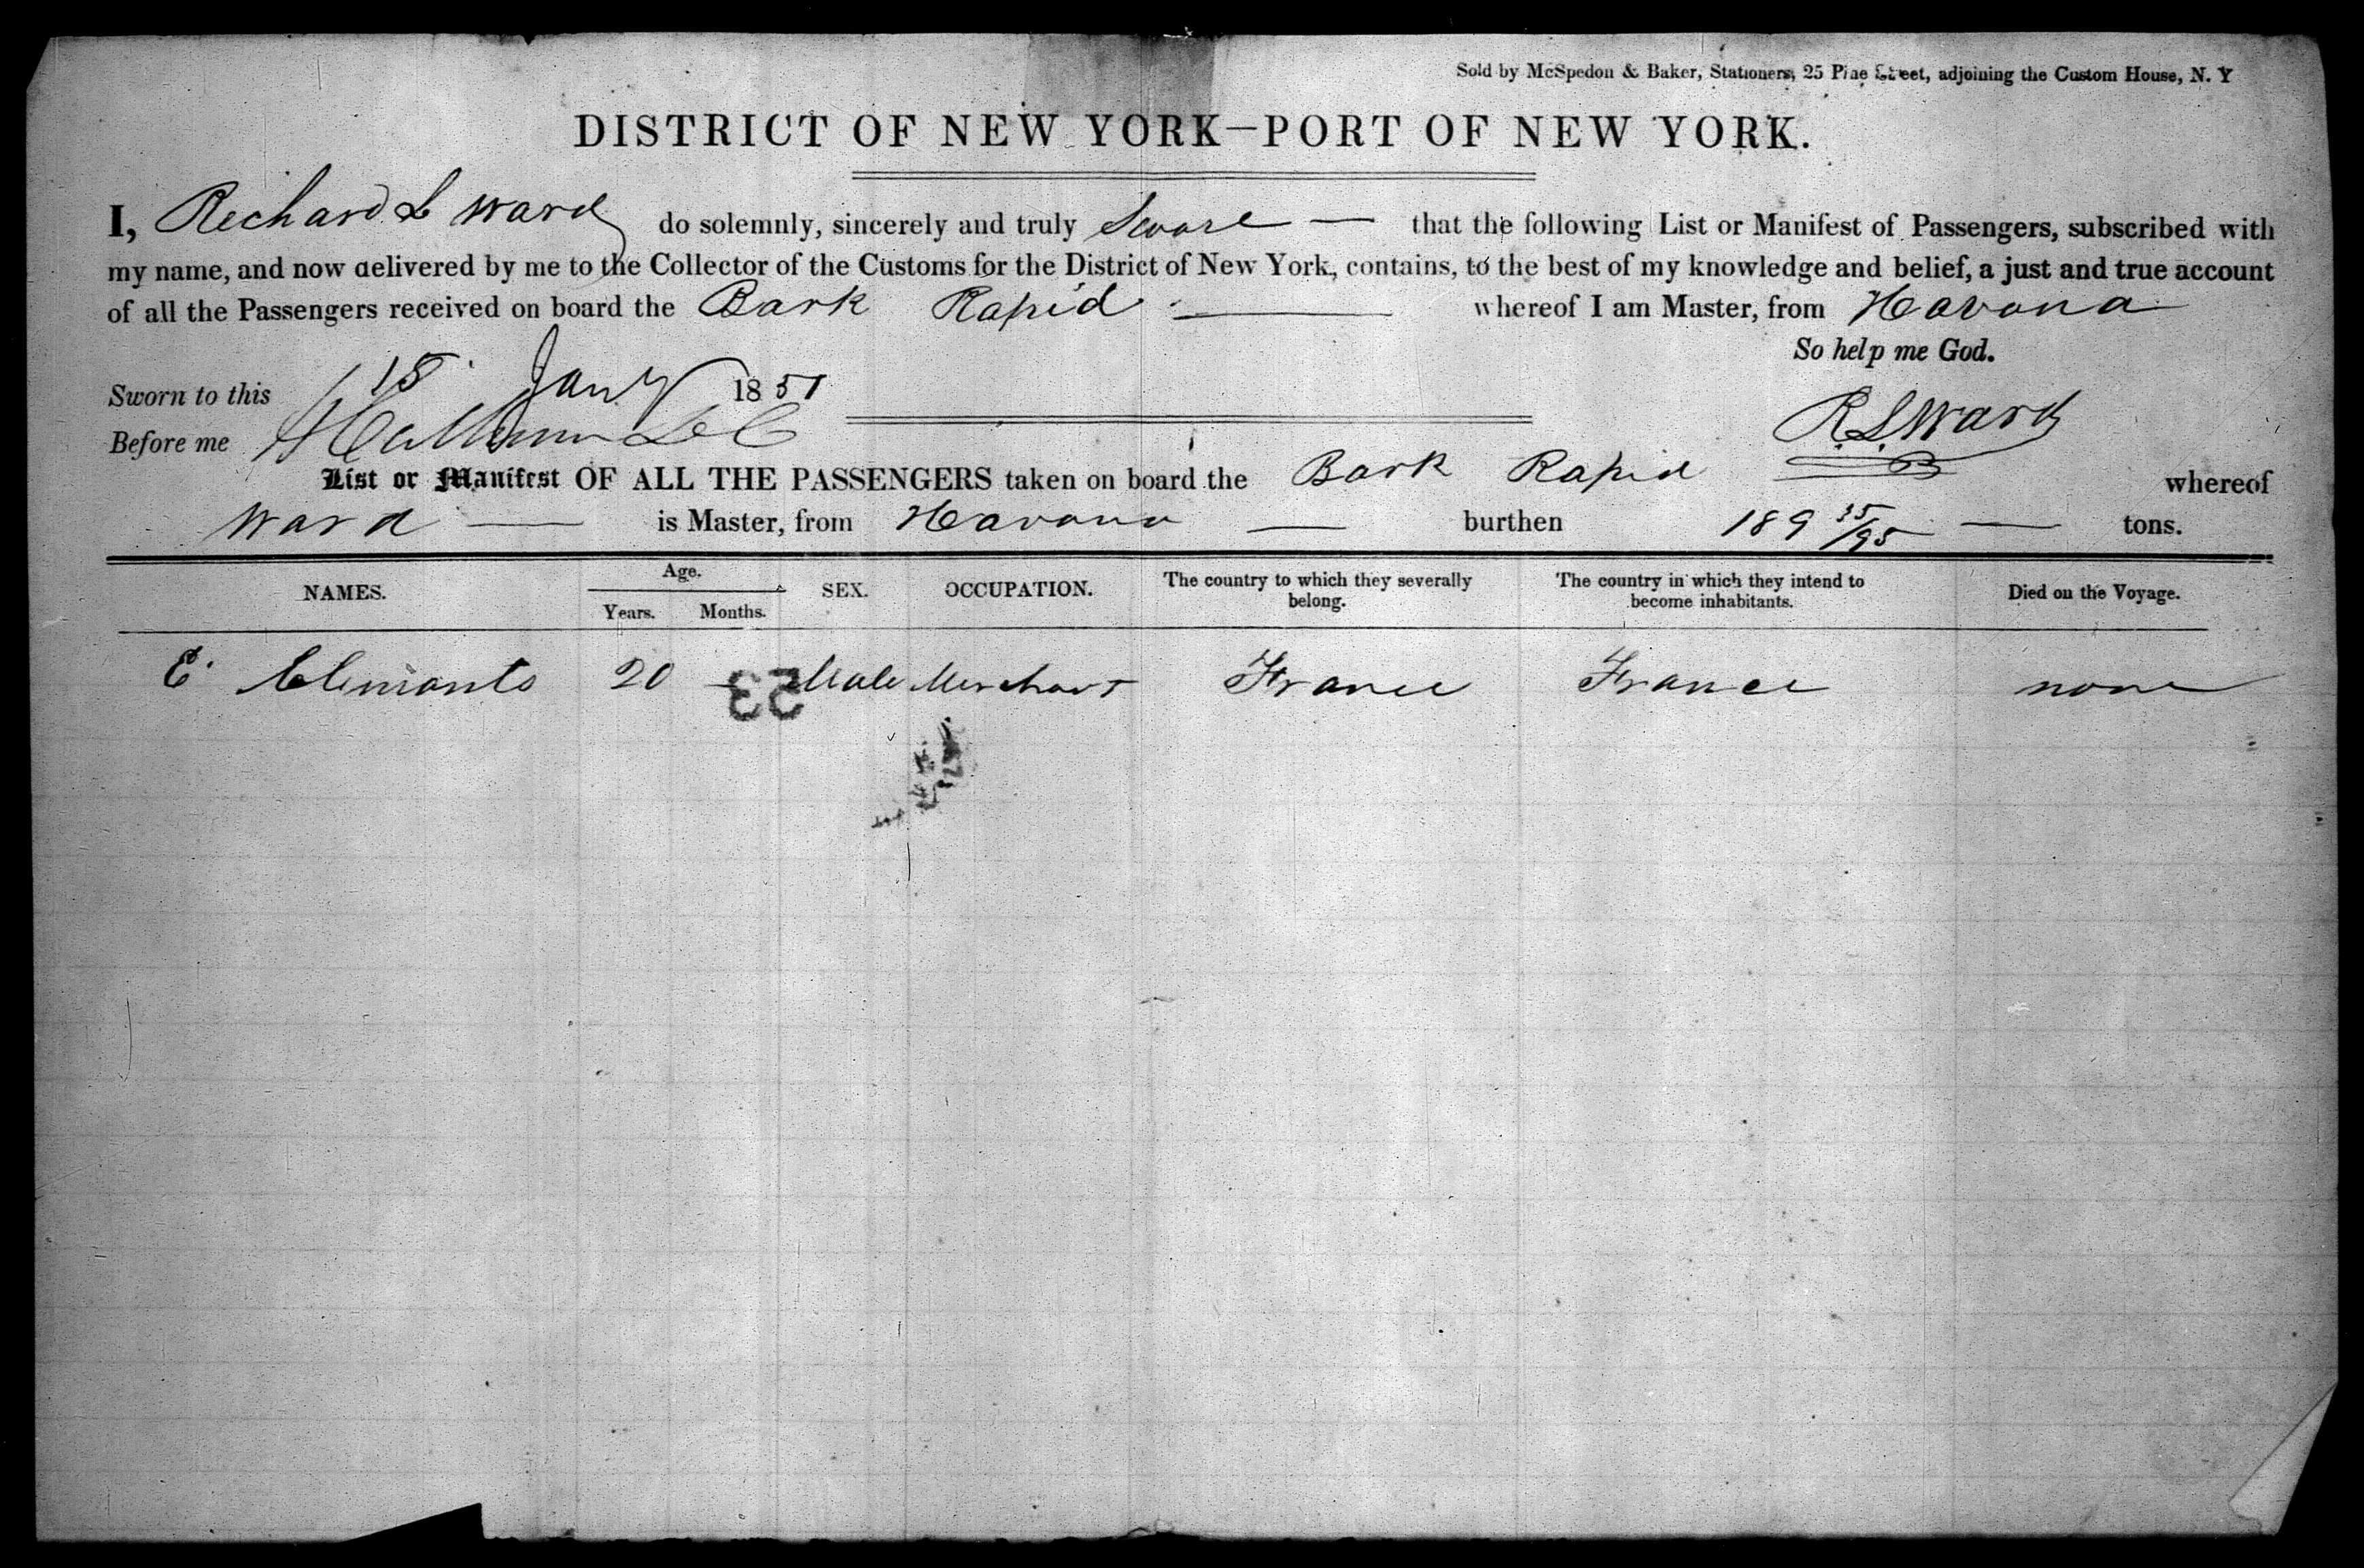 Sold by McSpedon & Baker, Stationers, 25 Pine Street, adjoining the Custom House, N. Y
DISTRICT OF NEW YORK—PORT OF NEW YORK.
I, Richard L Ward do solemnly, sincerely and truly Swear — that the following List or Manifest of Passengers, subscribed with
my name, and now delivered by me to the Collector of the Customs for the District of New York, contains, to the best of my knowledge and belief, a just and true account
of all the Passengers received on board the Bark Rapid — whereof I am Master, from Havana
So help me God.
Sworn to this 18 Jany 1851
Before me
R. L. Ward
List or Manifest OF ALL THE PASSENGERS taken on board the Bark Rapid whereof
Ward — is Master, from Havana — burthen 189 35/95 — tons.
NAMES. Age. Years. Months. SEX. OCCUPATION. The country to which they severally belong. The country in which they intend to become inhabitants. Died on the Voyage.
E. Clemants 20 — Male Merchant France France none
23